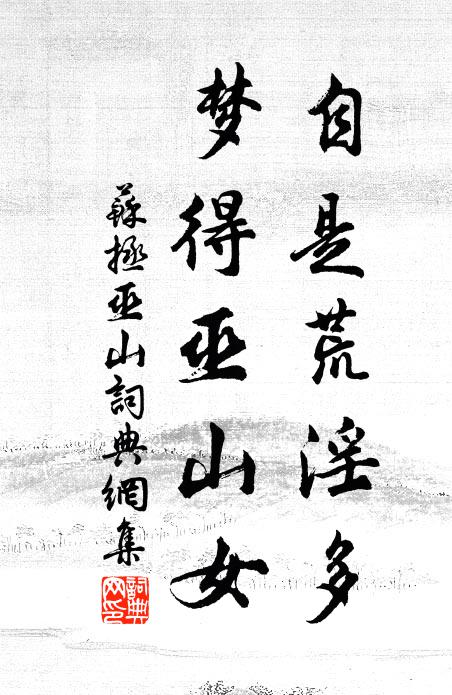 自是荒淫多
梦得巫山女
蘇拯巫山詞典網集
詞典网印